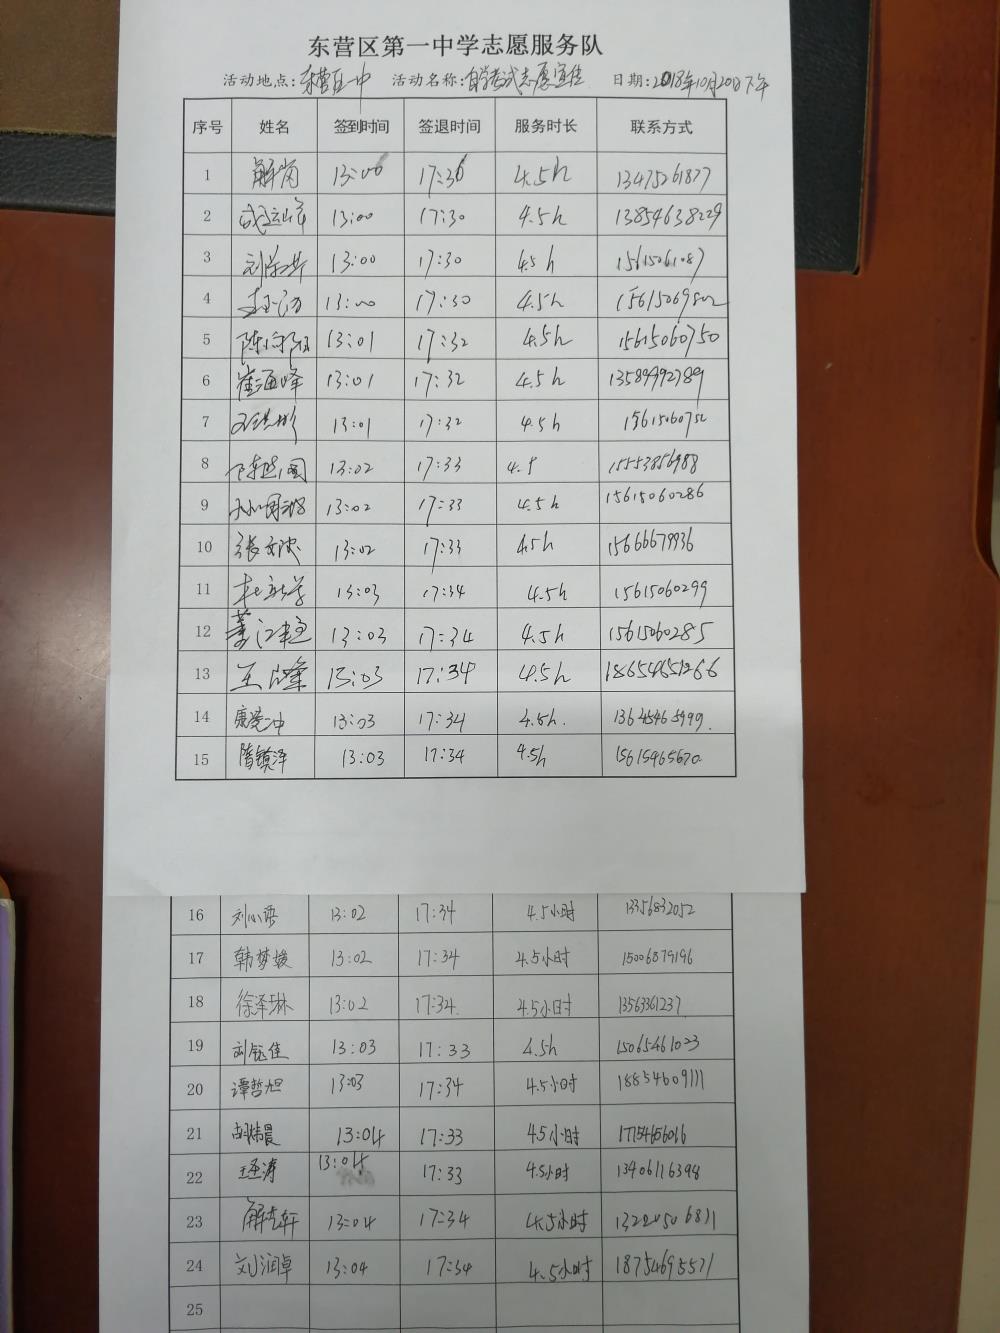 东营区第一中学志愿服务队
活动地点:东营区一中 活动名称:自学考试志愿宣传 日期:2018年10月20日下午
序号 姓名 签到时间 签退时间 服务时长 联系方式
1 解岗 13:00 17:30 4.5h 13475261877
2 13:00 17:30 4.5h 13854638229
3 13:00 17:30 4.5h
4 13:00 17:30 4.5h 15615069802
5 13:01 17:32 4.5h 15615060750
6 崔海峰 13:01 17:32 4.5h 13589992789
7 13:01 17:32 4.5h 15615060752
8 13:02 17:33 4.5 15553856988
9 13:02 17:33 4.5h 15615060286
10 13:02 17:33 4.5h 15666679936
11 杜新学 13:03 17:34 4.5h 15615060299
12 13:03 17:34 4.5h 15615060285
13 王峰 13:03 17:34 4.5h 18654651266
14 13:03 17:34 4.5h. 13645465999.
15 隋镇泽 13:03 17:34 4.5h 15615965670
16 刘心语 13:02 17:34 4.5小时 13356832052
17 韩梦媛 13:02 17:34 4.5小时 15006879196
18 徐泽琳 13:02 17:34 4.5小时 13563361237
19 刘钰佳 13:03 17:33 4.5h 15065461023
20 谭哲旭 13:03 17:34 4.5小时 18854609111
21 胡炜晨 13:04 17:33 4.5小时 17154656016
22 王圣涛 13:04 17:33 4.5小时 13406116398
23 解志轩 13:04 17:34 4.5小时 13220506811
24 刘润卓 13:04 17:34 4.5小时 18754695571
25